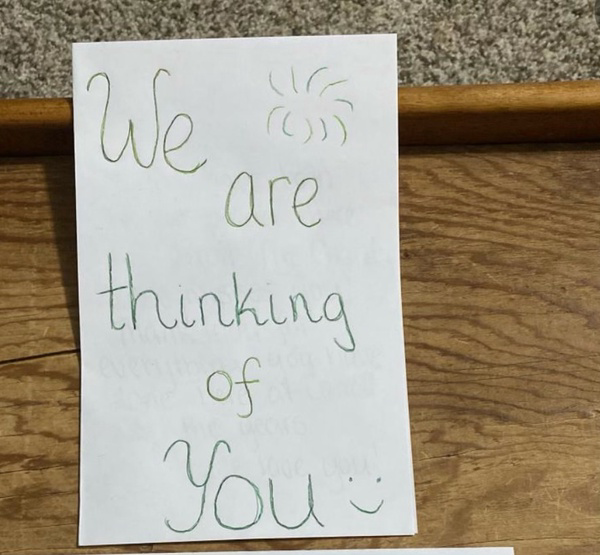 We
are
thinking
of
You :)